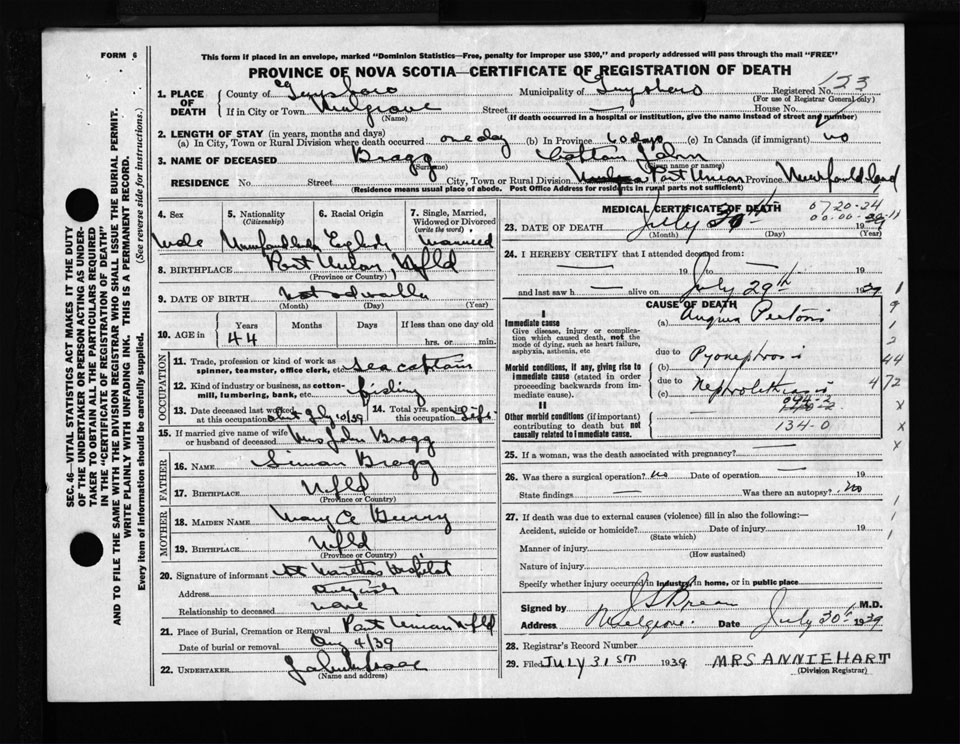 FORM 6
This form if placed in an envelope, marked "Dominion Statistics—Free, penalty for improper use $300," and properly addressed will pass through the mail "FREE"
PROVINCE OF NOVA SCOTIA—CERTIFICATE OF REGISTRATION OF DEATH
SEC. 46—VITAL STATISTICS ACT MAKES IT THE DUTY OF THE UNDERTAKER OR PERSON ACTING AS UNDERTAKER TO OBTAIN ALL THE PARTICULARS REQUIRED IN THE "CERTIFICATE OF REGISTRATION OF DEATH"
AND TO FILE THE SAME WITH THE DIVISION REGISTRAR WHO SHALL ISSUE THE BURIAL PERMIT.
WRITE PLAINLY WITH UNFADING INK. THIS IS A PERMANENT RECORD.
Every item of information should be carefully supplied. (See reverse side for instructions.)
1. PLACE OF DEATH County of Guysboro Municipality of Guysboro Registered No. 123
(For use of Registrar General only)
If in City or Town Mulgrave Street — House No.
(Name) (If death occurred in a hospital or institution, give the name instead of street and number)
2. LENGTH OF STAY (in years, months and days)
(a) In City, Town or Rural Division where death occurred one day (b) In Province 60 days (c) In Canada (if immigrant) no
3. NAME OF DECEASED Bragg John
(Surname) (Given name or names)
RESIDENCE No. Street City, Town or Rural Division Port Union Province Newfoundland
(Residence means usual place of abode. Post Office Address for residents in rural parts not sufficient)
4. Sex 5. Nationality (Citizenship) 6. Racial Origin 7. Single, Married, Widowed or Divorced (write the word)
Male English Married
8. BIRTHPLACE Port Union, Nfld
(Province or Country)
9. DATE OF BIRTH
(Month) (Day) (Year)
10. AGE in Years Months Days If less than one day
44 hrs. or min.
OCCUPATION
11. Trade, profession or kind of work as spinner, teamster, office clerk, etc. Sea Captain
12. Kind of industry or business, as cotton-mill, lumbering, bank, etc. fishing
13. Date deceased last worked at this occupation 14. Total yrs. spent in this occupation Life
15. If married give name of wife or husband of deceased Mrs John Bragg
FATHER
16. NAME Simon Bragg
17. BIRTHPLACE Nfld
(Province or Country)
MOTHER
18. MAIDEN NAME
19. BIRTHPLACE Nfld
(Province or Country)
20. Signature of informant St Marthas Hospital
Address Antigonish
Relationship to deceased none
21. Place of Burial, Cremation or Removal Port Union Nfld
Date of burial or removal Aug 4/39
22. UNDERTAKER
(Name and address)
MEDICAL CERTIFICATE OF DEATH
23. DATE OF DEATH July
(Month) (Day) (Year)
24. I HEREBY CERTIFY that I attended deceased from:
— 19 to — 19
and last saw h — alive on July 29th 1939
CAUSE OF DEATH
I
Immediate cause
Give disease, injury or complication which caused death, not the mode of dying, such as heart failure, asphyxia, asthenia, etc
(a) Angina Pectoris
due to
Morbid conditions, if any, giving rise to immediate cause (stated in order proceeding backwards from immediate cause).
(b) Pyonephrosis
due to
(c) Nephrolithiasis
II
Other morbid conditions (if important) contributing to death but not causally related to immediate cause.
134-0
25. If a woman, was the death associated with pregnancy?
26. Was there a surgical operation? No Date of operation — 19
State findings — Was there an autopsy? No
27. If death was due to external causes (violence) fill in also the following:—
Accident, suicide or homicide? Date of injury 19
(State which)
Manner of injury
(How sustained)
Nature of injury
Specify whether injury occurred in industry, in home, or in public place
Signed by M.D.
Address Mulgrave Date July 30th 1939
28. Registrar's Record Number
29. Filed JULY 31ST 1939 MRS ANNIE HART
(Division Registrar)